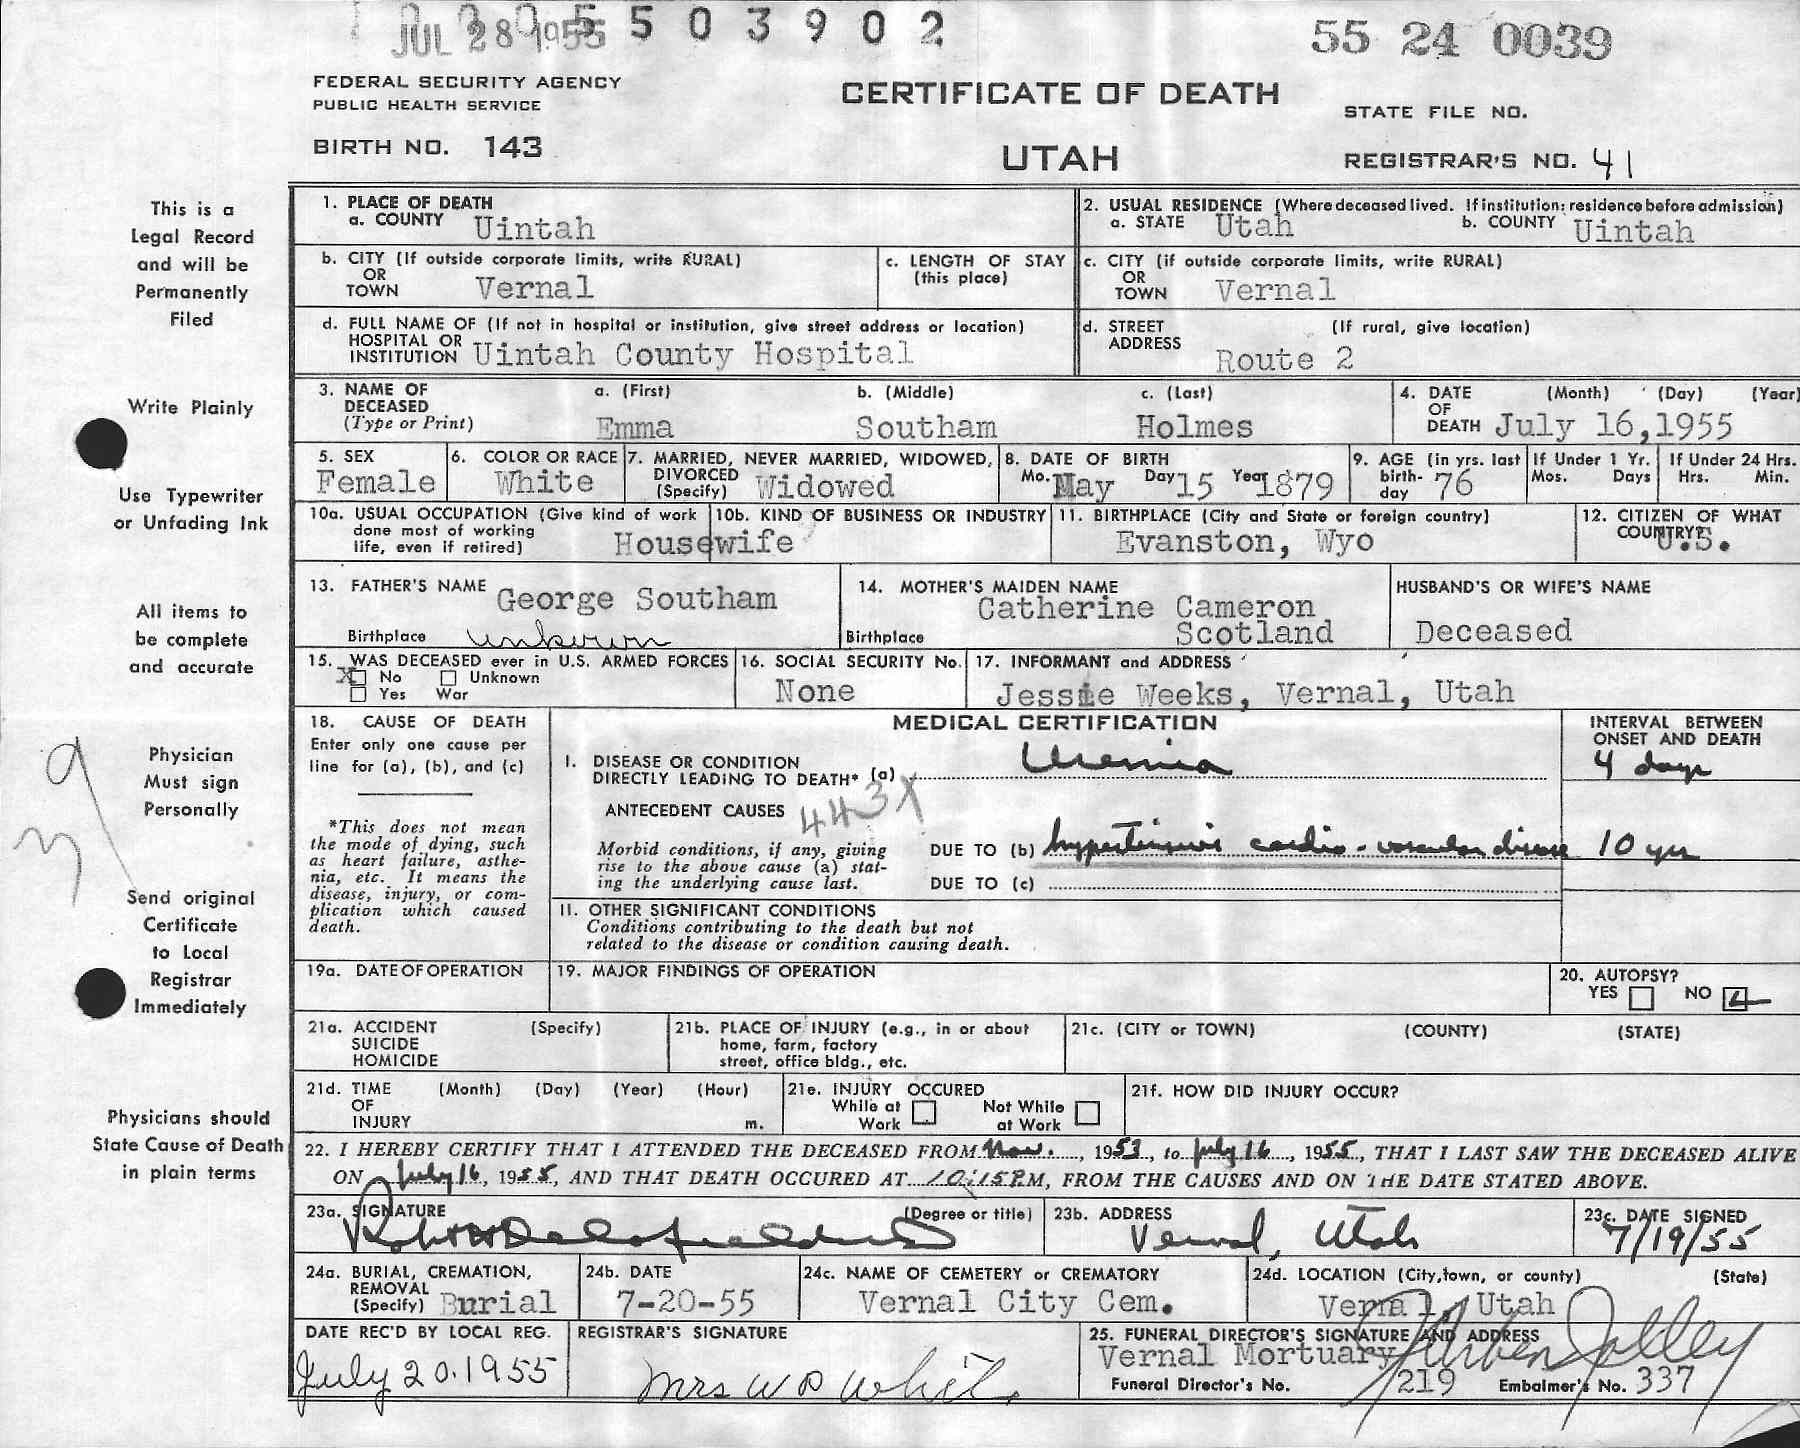 JUL 28 1955 5 5 0 3 9 0 2
55 24 0039
FEDERAL SECURITY AGENCY
PUBLIC HEALTH SERVICE
CERTIFICATE OF DEATH
STATE FILE NO.
BIRTH NO. 143
UTAH
REGISTRAR'S NO. 41
This is a
Legal Record
and will be
Permanently
Filed
Write Plainly
Use Typewriter
or Unfading Ink
All items to
be complete
and accurate
Physician
Must sign
Personally
Send original
Certificate
to Local
Registrar
Immediately
Physicians should
State Cause of Death
in plain terms
1. PLACE OF DEATH
a. COUNTY Uintah
2. USUAL RESIDENCE (Where deceased lived. If institution: residence before admission)
a. STATE Utah b. COUNTY Uintah
b. CITY (If outside corporate limits, write RURAL)
OR
TOWN Vernal
c. LENGTH OF STAY
(this place)
c. CITY (if outside corporate limits, write RURAL)
OR
TOWN Vernal
d. FULL NAME OF (If not in hospital or institution, give street address or location)
HOSPITAL OR
INSTITUTION Uintah County Hospital
d. STREET (If rural, give location)
ADDRESS
Route 2
3. NAME OF a. (First) b. (Middle) c. (Last)
DECEASED
(Type or Print) Emma Southam Holmes
4. DATE (Month) (Day) (Year)
OF
DEATH July 16,1955
5. SEX
Female
6. COLOR OR RACE
White
7. MARRIED, NEVER MARRIED, WIDOWED,
DIVORCED
(Specify) Widowed
8. DATE OF BIRTH
Mo. May Day 15 Year 1879
9. AGE (in yrs. last
birth-
day 76
If Under 1 Yr.
Mos. Days
If Under 24 Hrs.
Hrs. Min.
10a. USUAL OCCUPATION (Give kind of work
done most of working
life, even if retired) Housewife
10b. KIND OF BUSINESS OR INDUSTRY
11. BIRTHPLACE (City and State or foreign country)
Evanston, Wyo
12. CITIZEN OF WHAT
COUNTRY? U.S.
13. FATHER'S NAME George Southam
Birthplace unknown
14. MOTHER'S MAIDEN NAME
Catherine Cameron
Birthplace Scotland
HUSBAND'S OR WIFE'S NAME
Deceased
15. WAS DECEASED ever in U.S. ARMED FORCES
X No Unknown
Yes War
16. SOCIAL SECURITY No.
None
17. INFORMANT and ADDRESS
Jessie Weeks, Vernal, Utah
18. CAUSE OF DEATH
Enter only one cause per
line for (a), (b), and (c)
*This does not mean
the mode of dying, such
as heart failure, asthe-
nia, etc. It means the
disease, injury, or com-
plication which caused
death.
MEDICAL CERTIFICATION
INTERVAL BETWEEN
ONSET AND DEATH
I. DISEASE OR CONDITION
DIRECTLY LEADING TO DEATH* (a) Uremia 4 days
ANTECEDENT CAUSES 443X
Morbid conditions, if any, giving
rise to the above cause (a) stat-
ing the underlying cause last.
DUE TO (b) hypertensive cardio-vascular disease 10 yrs
DUE TO (c)
II. OTHER SIGNIFICANT CONDITIONS
Conditions contributing to the death but not
related to the disease or condition causing death.
19a. DATE OF OPERATION
19. MAJOR FINDINGS OF OPERATION
20. AUTOPSY?
YES NO
21a. ACCIDENT (Specify)
SUICIDE
HOMICIDE
21b. PLACE OF INJURY (e.g., in or about
home, farm, factory
street, office bldg., etc.
21c. (CITY or TOWN) (COUNTY) (STATE)
21d. TIME (Month) (Day) (Year) (Hour)
OF
INJURY m.
21e. INJURY OCCURED
While at Not While
Work at Work
21f. HOW DID INJURY OCCUR?
22. I HEREBY CERTIFY THAT I ATTENDED THE DECEASED FROM Nov. , 1953, to July 16, 1955, THAT I LAST SAW THE DECEASED ALIVE
ON July 16, 1955, AND THAT DEATH OCCURED AT 10:15 P.M, FROM THE CAUSES AND ON THE DATE STATED ABOVE.
23a. SIGNATURE (Degree or title)
23b. ADDRESS
Vernal, Utah
23c. DATE SIGNED
7/19/55
24a. BURIAL, CREMATION,
REMOVAL
(Specify) Burial
24b. DATE
7-20-55
24c. NAME OF CEMETERY or CREMATORY
Vernal City Cem.
24d. LOCATION (City, town, or county) (State)
Vernal, Utah
DATE REC'D BY LOCAL REG.
July 20. 1955
REGISTRAR'S SIGNATURE
Mrs W D White
25. FUNERAL DIRECTOR'S SIGNATURE AND ADDRESS
Vernal Mortuary
Funeral Director's No. 219 Embalmer's No. 337